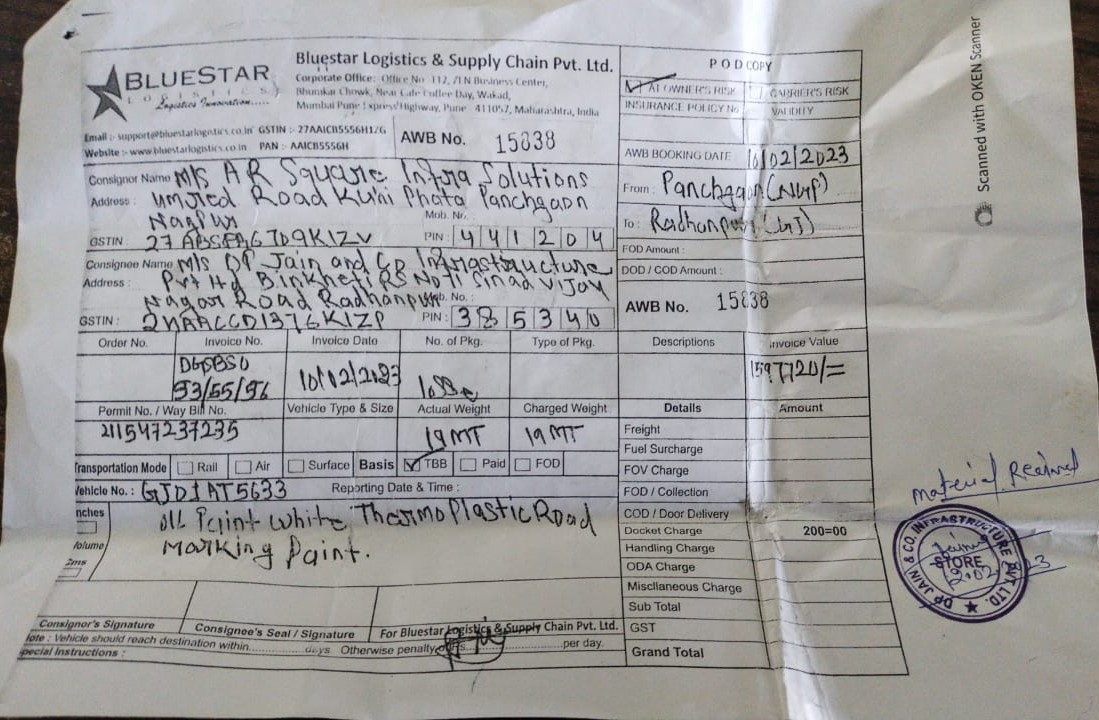 BLUESTAR
LOGISTICS
Logistics Innovation......
Bluestar Logistics & Supply Chain Pvt. Ltd.
Corporate Office: Office No 112, ZEN Business Center,
Bhumkar Chowk, Near Cafe Coffee Day, Wakad,
Mumbai Pune Express Highway, Pune 411057, Maharashtra, India
Email :- support@bluestarlogistics.co.in GSTIN :- 27AAICB5556H1ZG
Website :- www.bluestarlogistics.co.in PAN :- AAICB5556H
AWB No. 15838
POD COPY
AT OWNER'S RISK CARRIER'S RISK
INSURANCE POLICY No VALIDITY
AWB BOOKING DATE 10/02/2023
From : Panchgaon (NGP)
To : Radhanpur (GJ)
FOD Amount :
DOD / COD Amount :
AWB No. 15838
Consignor Name M/s A R Square Infra Solutions
Address : Umred Road Kuhi Phata Panchgaon
Nagpur Mob. No.
GSTIN : PIN : 441204
Consignee Name M/s DP Jain and Co Infrastructure
Address : Pvt Ltd
Nagar Road Radhanpur Mob. No. :
GSTIN : PIN : 385340
Order No. Invoice No. Invoice Date No. of Pkg. Type of Pkg. Descriptions Invoice Value
53/55/56 10/02/2023 losse 1597720/=
Permit No. / Way Bill No. Vehicle Type & Size Actual Weight Charged Weight Details Amount
211547237235 19 MT 19 MT
Freight
Fuel Surcharge
FOV Charge
FOD / Collection
COD / Door Delivery
Docket Charge 200=00
Handling Charge
ODA Charge
Miscllaneous Charge
Sub Total
GST
Grand Total
Transportation Mode Rail Air Surface Basis TBB Paid FOD
Vehicle No. : GJ01AT5633 Reporting Date & Time :
nches
Volume
Cms
Paint White ThermoPlastic Road
Marking Paint.
Consignor's Signature Consignee's Seal / Signature For Bluestar Logistics & Supply Chain Pvt. Ltd.
Note : Vehicle should reach destination within.................days Otherwise penalty of Rs....................per day.
pecial Instructions :
Material Received
DP JAIN & CO. INFRASTRUCTURE PVT. LTD.
STORE
Scanned with OKEN Scanner